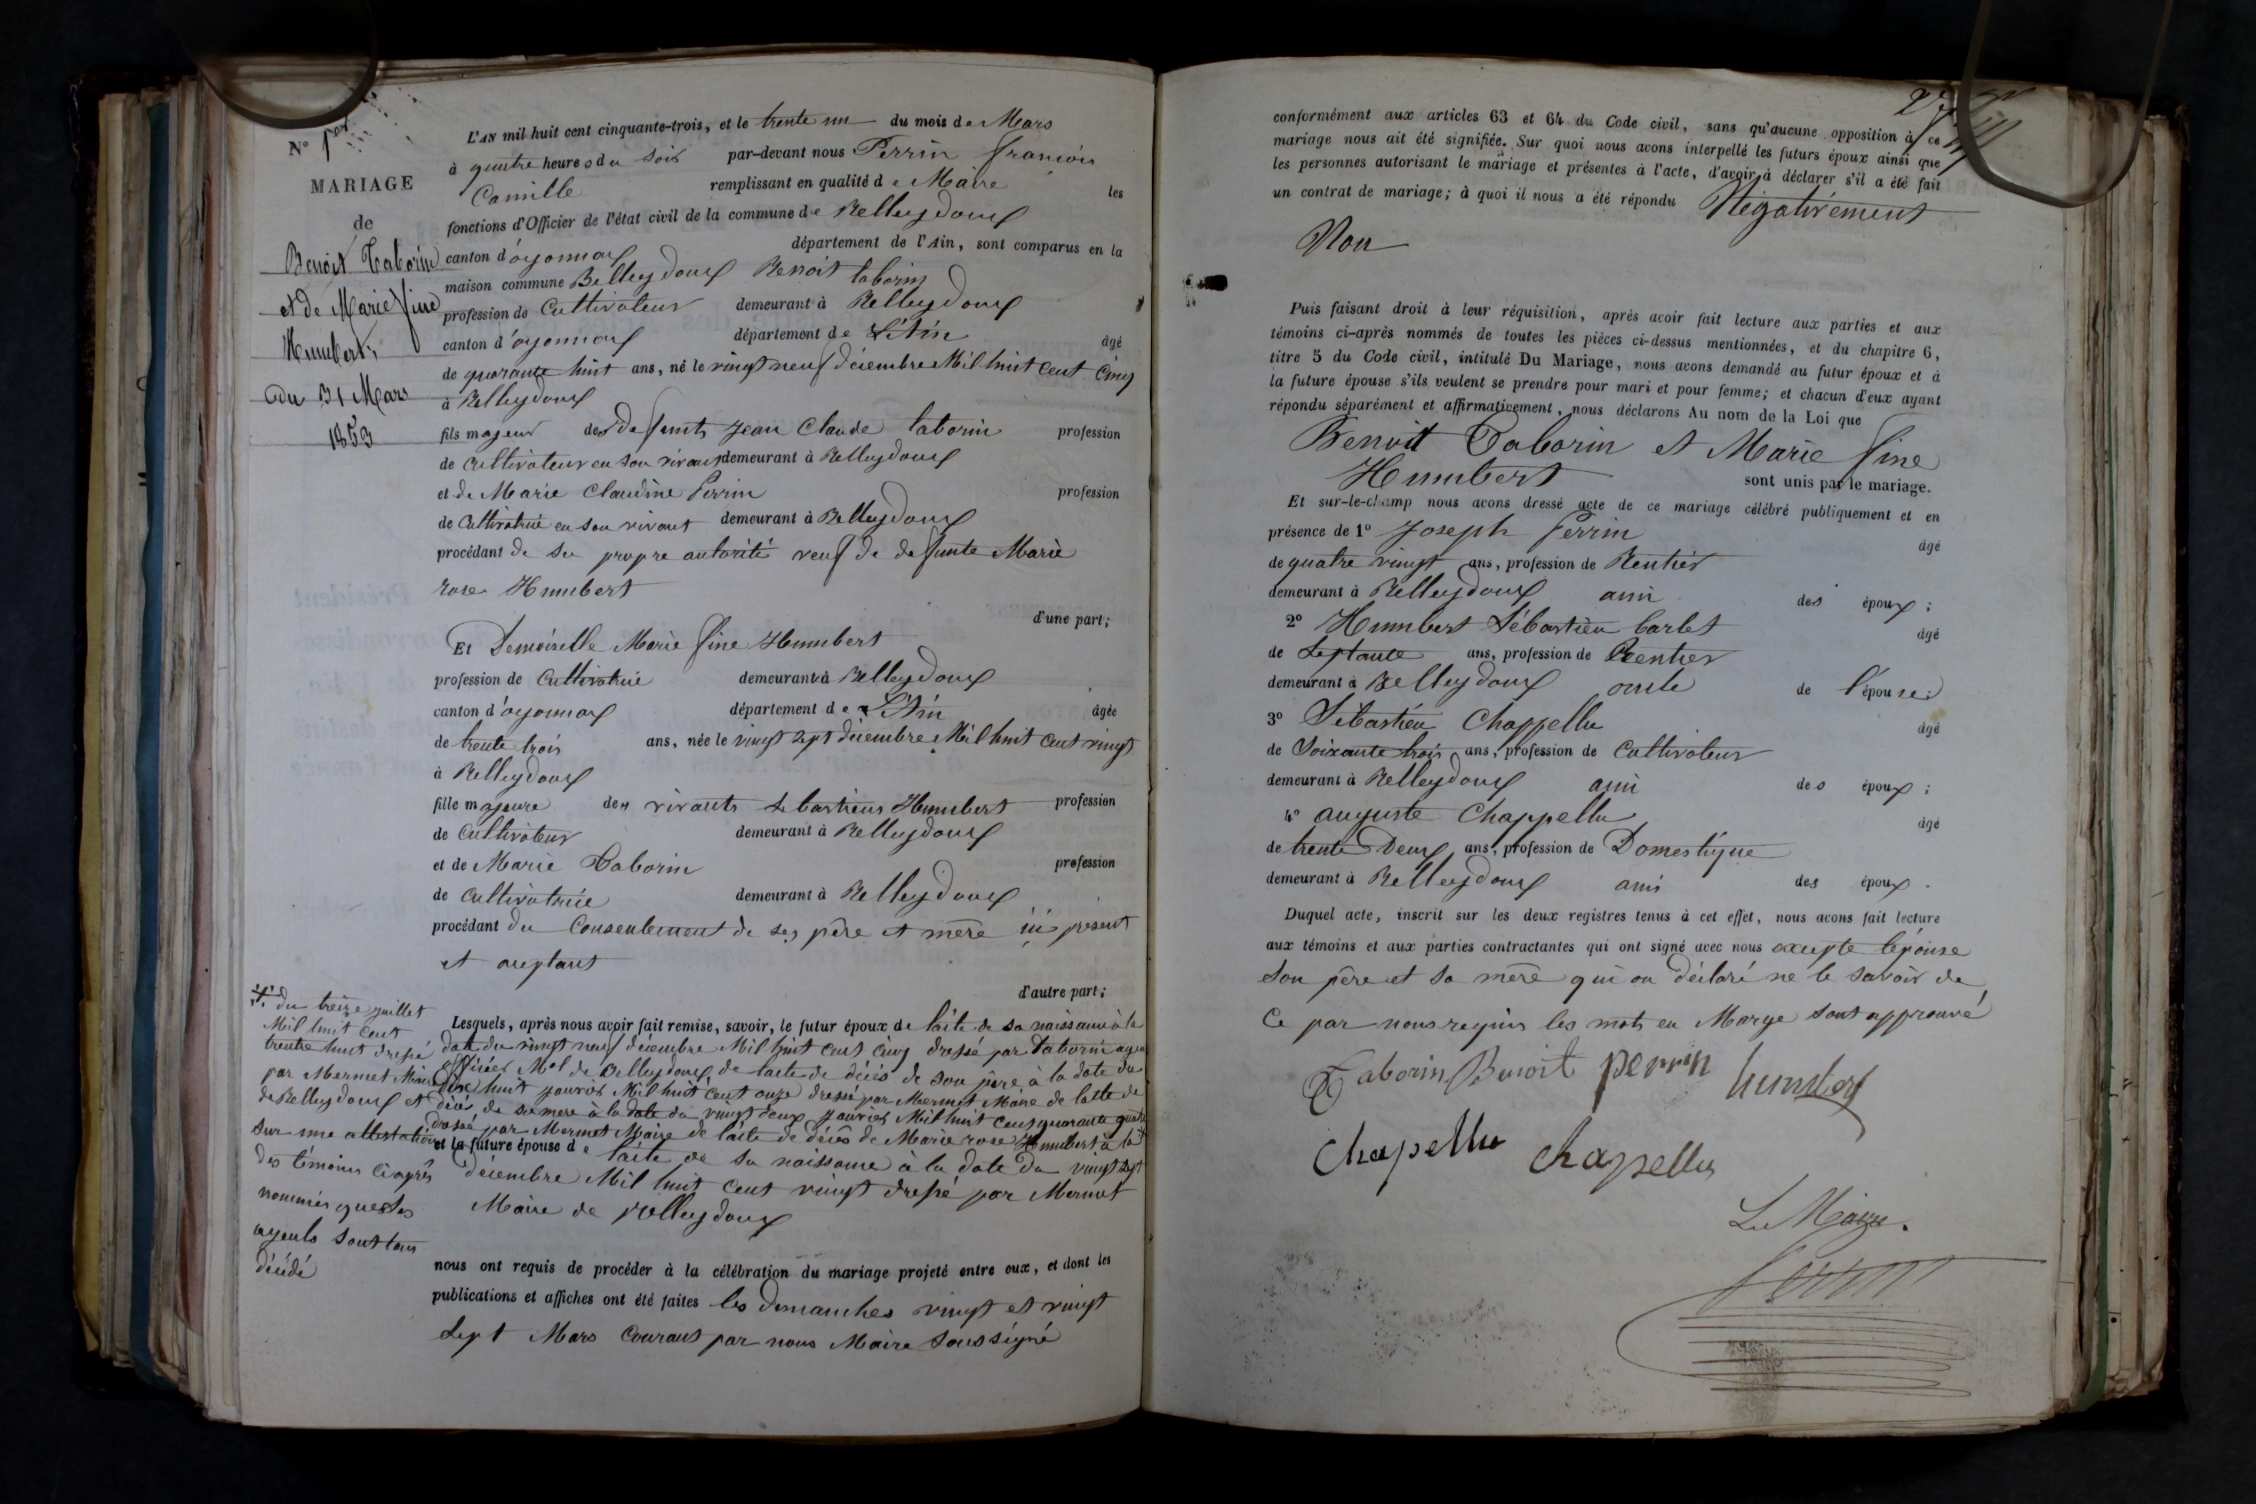 N° 1er
MARIAGE
de
Benoit Taborin
et de Marie fine
Humbert,
du 31 Mars
1853
L'AN mil huit cent cinquante-trois, et le trente un du mois de Mars
à quatre heures du soir par-devant nous Perrin françois
Camille remplissant en qualité de Maire les
fonctions d'Officier de l'état civil de la commune de Belleydoux
canton d'oyonnax département de l'Ain, sont comparus en la
maison commune Belleydoux Benoit taborin
profession de Cultivateur demeurant à Belleydoux
canton d'oyonnax département de L'Ain âgé
de quarante huit ans, né le vingt neuf décembre Mil huit cent cinq
à Belleydoux
fils majeur des defunts Jean Claude taborin profession
de Cultivateur en son vivant demeurant à Belleydoux
et de Marie Claudine Perrin profession
de Cultivatrice en son vivant demeurant à Belleydoux
procédant de sa propre autorité veuf de defunte Marie
rose Humbert
d'une part;
Et Demoiselle Marie fine Humbert
profession de Cultivatrice demeurant à Belleydoux
canton d'oyonnax département de L'Ain âgée
de trente trois ans, née le vingt sept décembre Mil huit cent vingt
à Belleydoux
fille majeure des vivants sebastiens Humbert profession
de Cultivateur demeurant à Belleydoux
et de Marie Taborin profession
de Cultivatrice demeurant à Belleydoux
procédant du Consentement de ses père et mère ici présent
et aceptant
d'autre part;
Lesquels, après nous avoir fait remise, savoir, le futur époux de l'acte de sa naissance à la
date du vingt neuf décembre Mil huit cent cinq dressé par Taborin
officier de Belleydoux de l'acte de décès de son père à la date du
dix huit janvier Mil huit cent onze dressé par Mermet Maire de l'acte de
décès de sa mère à la date du vingt deux janvier Mil huit cent quarante quatre
dressé par Mermet Maire de l'acte de décès de Marie rose Humbert à la
et la future épouse de l'acte de sa naissance à la date du vingt sept
décembre Mil huit cent vingt dressé par Mermet
Maire de Belleydoux
du treize juillet
Mil huit cent
trente huit dressé
par Mermet Maire
de Belleydoux et
sur une attestation
des témoins ci après
nommés que les
ayeuls sont tous
décédé
nous ont requis de procéder à la célébration du mariage projeté entre eux, et dont les
publications et affiches ont été faites les dimanches vingt et vingt
sept Mars Courant par nous Maire soussigné
conformément aux articles 63 et 64 du Code civil, sans qu'aucune opposition à ce
mariage nous ait été signifiée. Sur quoi nous avons interpellé les futurs époux ainsi que
les personnes autorisant le mariage et présentes à l'acte, d'avoir à déclarer s'il a été fait
un contrat de mariage; à quoi il nous a été répondu Négativement
Non
Puis faisant droit à leur réquisition, après avoir fait lecture aux parties et aux
témoins ci-après nommés de toutes les pièces ci-dessus mentionnées, et du chapitre 6,
titre 5 du Code civil, intitulé Du Mariage, nous avons demandé au futur époux et à
la future épouse s'ils veulent se prendre pour mari et pour femme; et chacun d'eux ayant
répondu séparément et affirmativement, nous déclarons Au nom de la Loi que
Benoit Taborin et Marie fine
Humbert sont unis par le mariage.
Et sur-le-champ nous avons dressé acte de ce mariage célébré publiquement et en
présence de 1° Joseph Perrin âgé
de quatre vingt ans, profession de Rentier
demeurant à Belleydoux ami des époux;
2° Humbert Sébastien barbet âgé
de Septante ans, profession de Rentier
demeurant à Belleydoux oncle de l'épouse;
3° Sébastien Chappellu âgé
de Soixante trois ans, profession de Cultivateur
demeurant à Belleydoux ami des époux;
4° auguste Chappellu âgé
de trente Deux ans, profession de Domestique
demeurant à Belleydoux ami des époux.
Duquel acte, inscrit sur les deux registres tenus à cet effet, nous avons fait lecture
aux témoins et aux parties contractantes qui ont signé avec nous excepte l'épouse
son père et sa mère qui on déclaré ne le savoir de
ce par nous requis les mots en Marge sont approuvé
Taborin Benoit perrin humbert
Chapellu chapellu
Le Maire.
Perrin